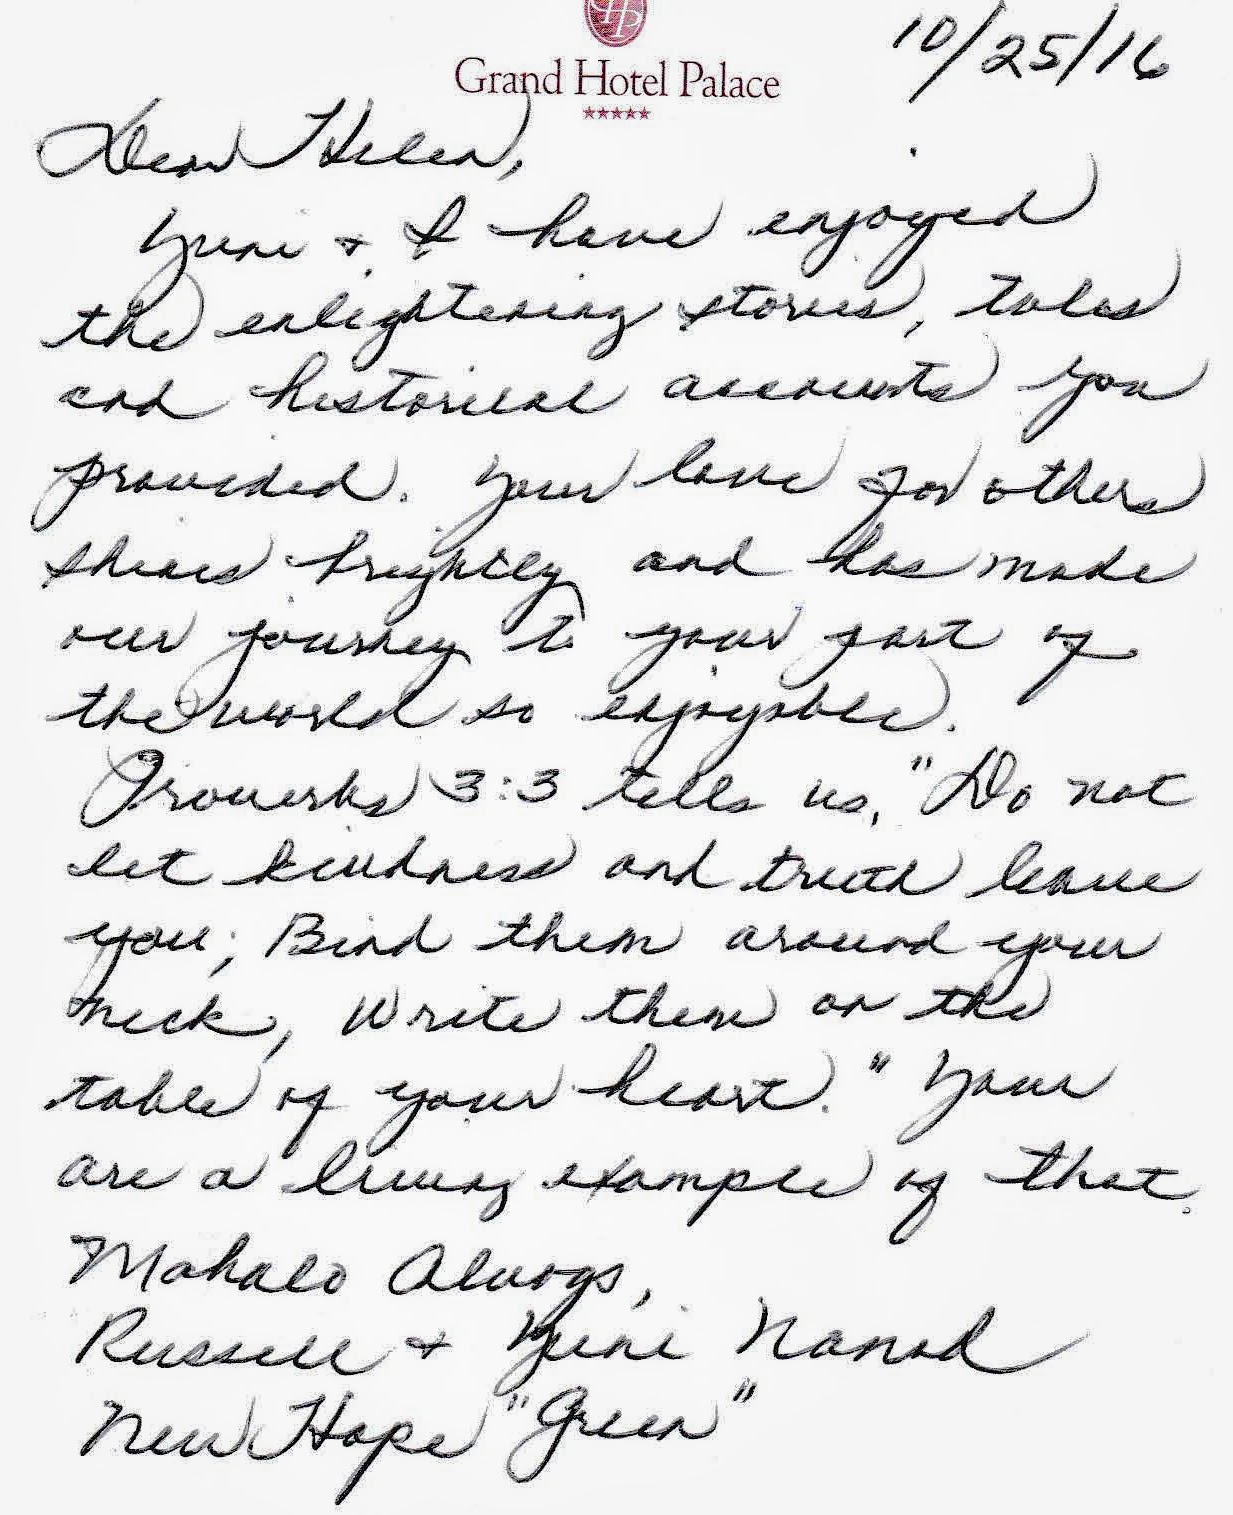 GHP
10/25/16
Grand Hotel Palace
Dear Helen,
Yuni & I have enjoyed
the enlightening stories, tales
and historical accounts you
provided. Your love for others
shines brightly and has made
our journey to your part of
the world so enjoyable.
Proverbs 3:3 tells us, "Do not
let kindness and truth leave
you; Bind them around your
neck, Write them on the
table of your heart." Your
are a living example of that.
Mahalo Always,
Russell & Yuni
New Hope "Green"